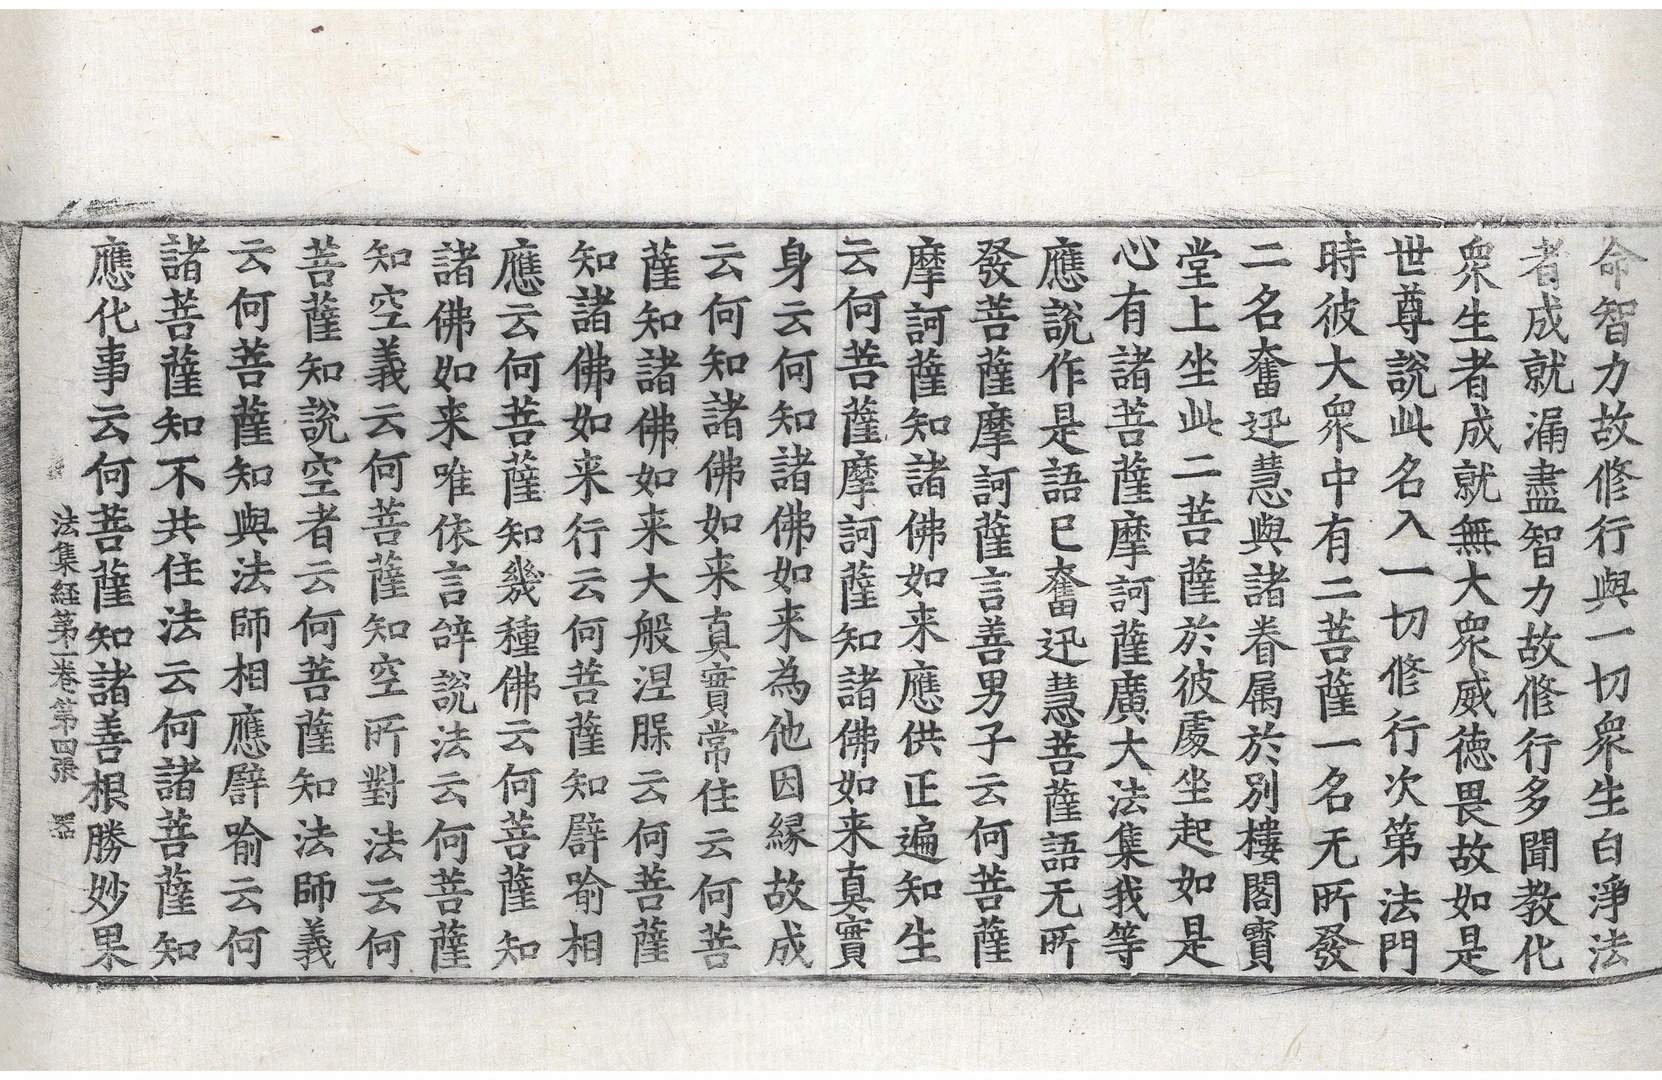 命智力故修行與一切衆生白淨法
者成就漏盡智力故修行多聞教化
衆生者成就無大衆威德畏故如是
世尊說此名入一切修行次第法門
時彼大衆中有二菩薩一名无所發
二名奮迅慧與諸眷属於別樓閣寳
堂上坐此二菩薩於彼處坐起如是
心有諸菩薩摩訶薩廣大法集我等
應說作是語已奮迅慧菩薩語无所
發菩薩摩訶薩言善男子云何菩薩
摩訶薩知諸佛如来應供正遍知生
云何菩薩摩訶薩知諸佛如来真實
身云何知諸佛如来為他因縁故成
云何知諸佛如来真實常住云何菩
薩知諸佛如来大般涅槃云何菩薩
知諸佛如来行云何菩薩知譬喻相
應云何菩薩知幾種佛云何菩薩知
諸佛如来唯依言辝說法云何菩薩
知空義云何菩薩知空所對法云何
菩薩知說空者云何菩薩知法師義
云何菩薩知與法師相應譬喻云何
諸菩薩知不共住法云何諸菩薩知
應化事云何菩薩知諸善根勝妙果
法集経第二卷 第四張 器